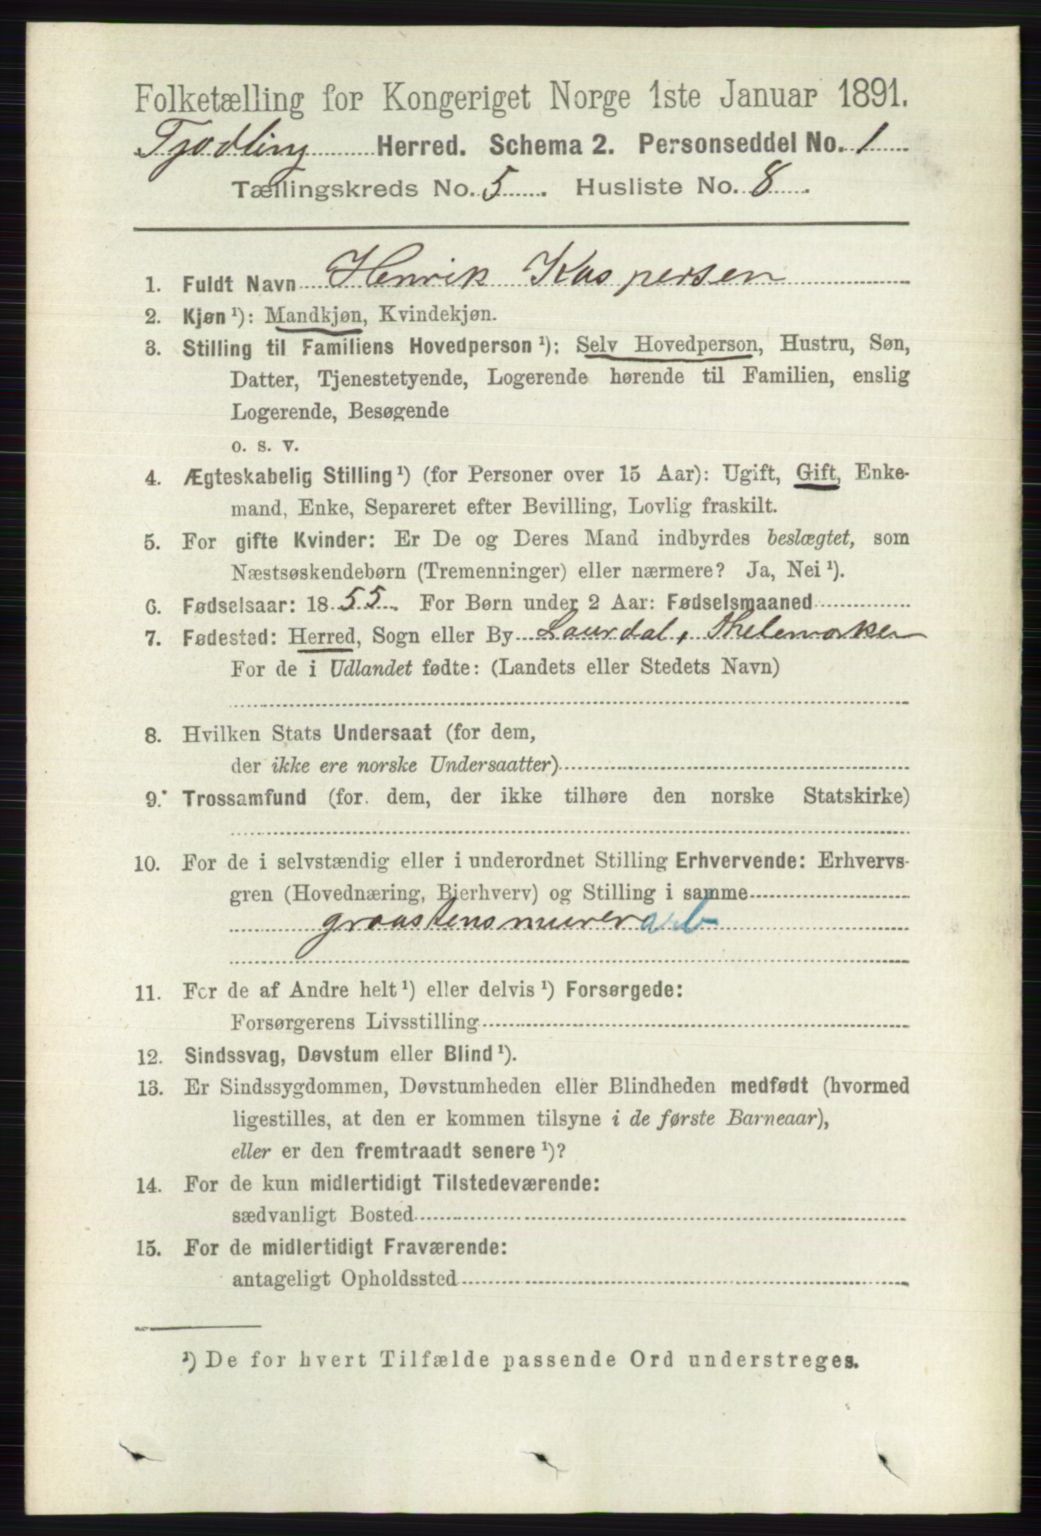 Folketælling for Kongeriget Norge 1ste Januar 1891.
Tjødling Herred. Schema 2. Personseddel No. 1
Tællingskreds No. 5. Husliste No. 8.
1. Fuldt Navn Henrik Kaspersen
2. Kjøn ¹): Mandkjøn, Kvindekjøn.
3. Stilling til Familiens Hovedperson ¹): Selv Hovedperson, Hustru, Søn,
Datter, Tjenestetyende, Logerende hørende til Familien, enslig
Logerende, Besøgende
o. s. v.
4. Ægteskabelig Stilling ¹) (for Personer over 15 Aar): Ugift, Gift, Enke-
mand, Enke, Separeret efter Bevilling, Lovlig fraskilt.
5. For gifte Kvinder: Er De og Deres Mand indbyrdes beslægtet, som
Næstsøskendebørn (Tremenninger) eller nærmere? Ja, Nei ¹).
6. Fødselsaar: 1855. For Børn under 2 Aar: Fødselsmaaned
7. Fødested: Herred, Sogn eller By Laurdal, Thelemarken
For de i Udlandet fødte: (Landets eller Stedets Navn)
8. Hvilken Stats Undersaat (for dem,
der ikke ere norske Undersaatter)
9. Trossamfund (for dem, der ikke tilhøre den norske Statskirke)
10. For de i selvstændig eller i underordnet Stilling Erhvervende: Erhvervs-
gren (Hovednæring, Bierhverv) og Stilling i samme
graastensmurer arb
11. For de af Andre helt ¹) eller delvis ¹) Forsørgede:
Forsørgerens Livsstilling
12. Sindssvag, Døvstum eller Blind ¹).
13. Er Sindssygdommen, Døvstumheden eller Blindheden medfødt (hvormed
ligestilles, at den er kommen tilsyne i de første Barneaar),
eller er den fremtraadt senere ¹)?
14. For de kun midlertidigt Tilstedeværende:
sædvanligt Bosted
15. For de midlertidigt Fraværende:
antageligt Opholdssted
¹) De for hvert Tilfælde passende Ord understreges.